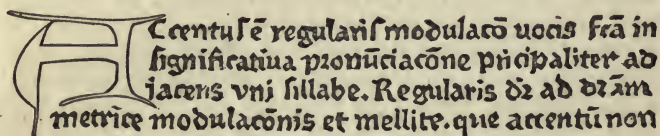 Accentus ē regularis modulacō uocis fcā in
significatiua pronūciacōne pricipaliter ad
iacens vni sillabe. Regularis dꝛ ad drām
metrice modulacōnis et mellite. que accentū non